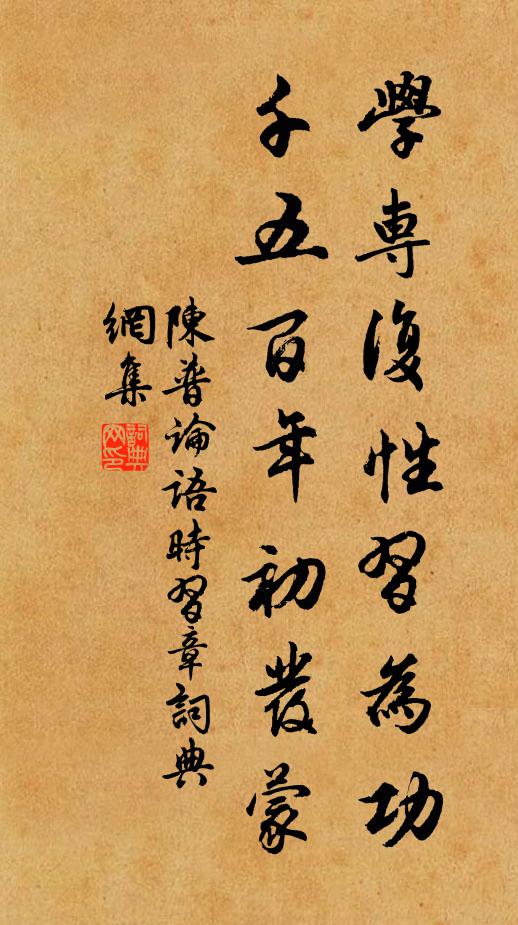 學専復性習為功
千五百年初發蒙
陳普論語時習章詞典
網集
詞典
网印